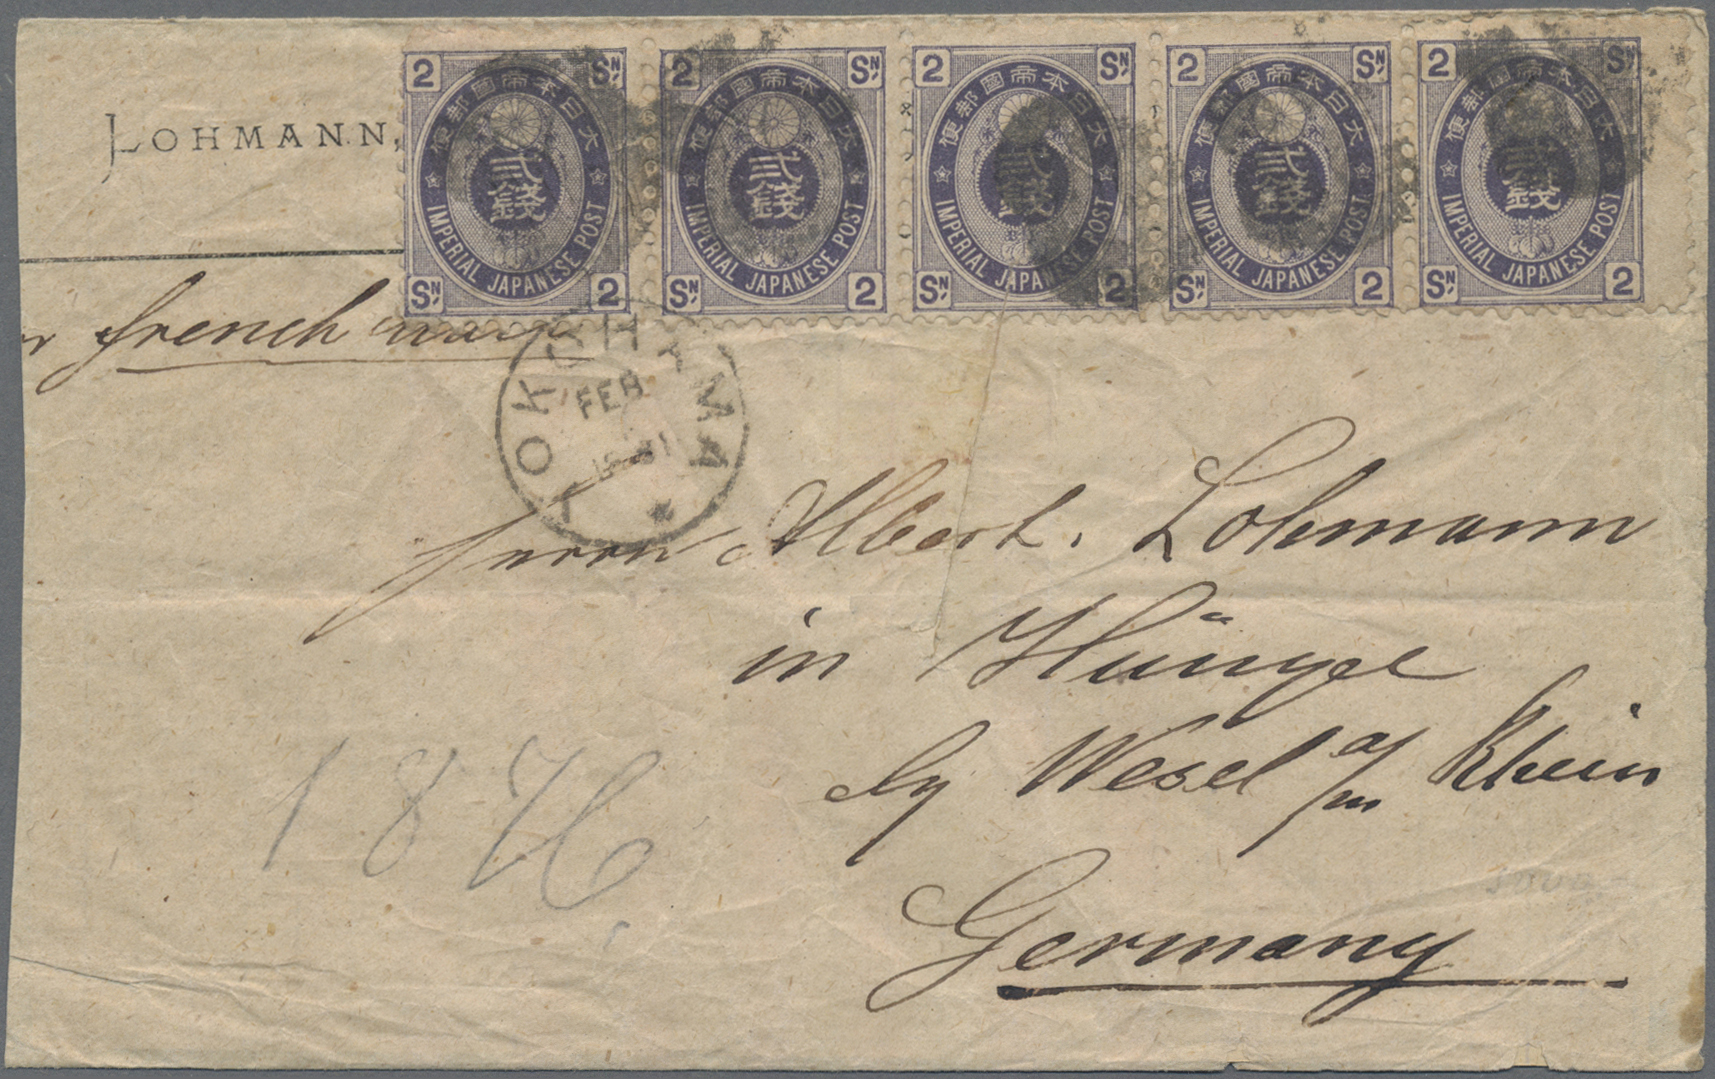 LOHMANN,
2 SN 2 SN 2 SN 2 SN 2 SN
大日本帝國郵便 大日本帝國郵便 大日本帝國郵便 大日本帝國郵便 大日本帝國郵便
貳錢 貳錢 貳錢 貳錢 貳錢
IMPERIAL JAPANESE POST IMPERIAL JAPANESE POST IMPERIAL JAPANESE POST IMPERIAL JAPANESE POST IMPERIAL JAPANESE POST
SN 2 SN 2 SN 2 SN 2 SN 2
french
YOKOHAMA
FEB
Herrn Albert Lohmann
in Hünxe
by Wesel a/m Rhein
Germany
1876